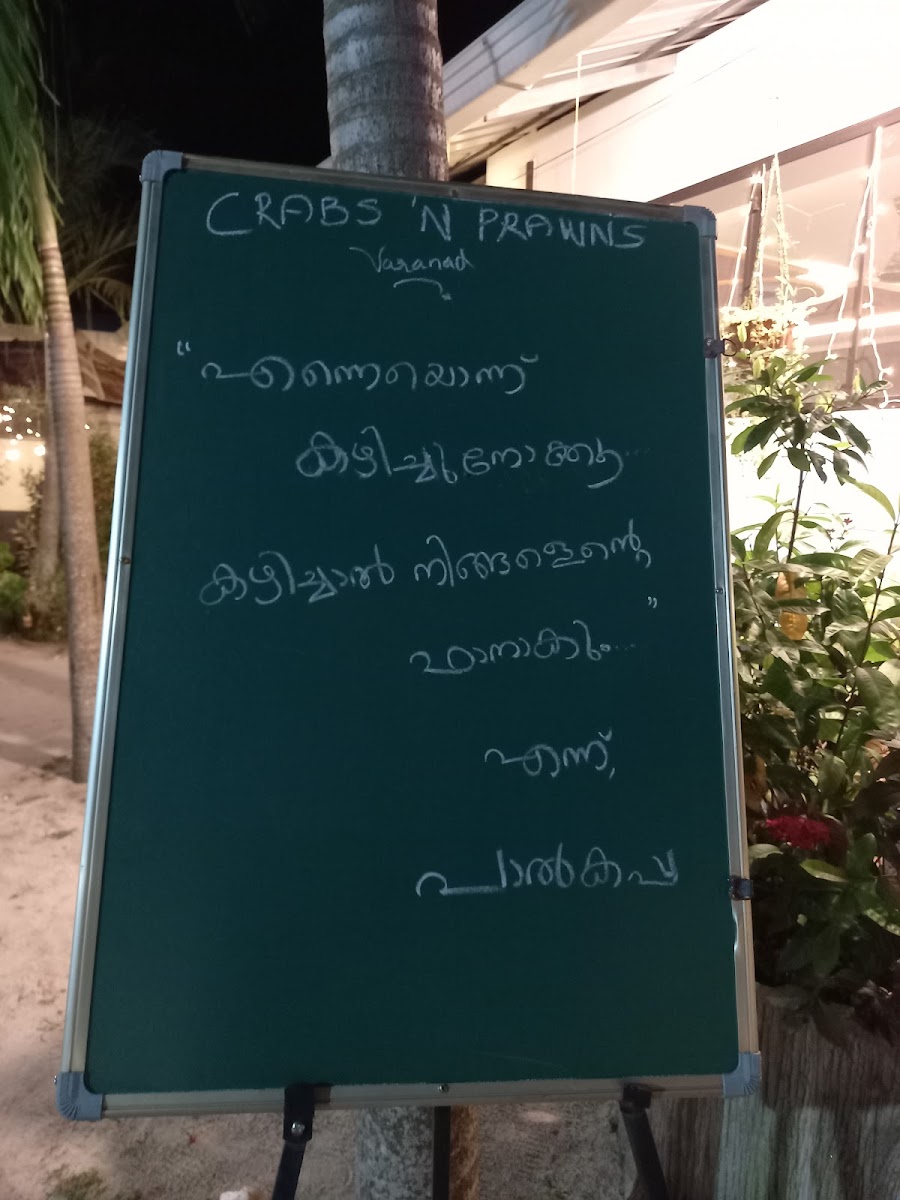 CRABS 'N PRAWNS
Varanad
"എന്നെയൊന്ന്
കഴിച്ചുനോക്കൂ...
കഴിച്ചാൽ നിങ്ങളെന്റെ
ഫാനാകും..."
എന്ന്,
പാൽകപ്പ